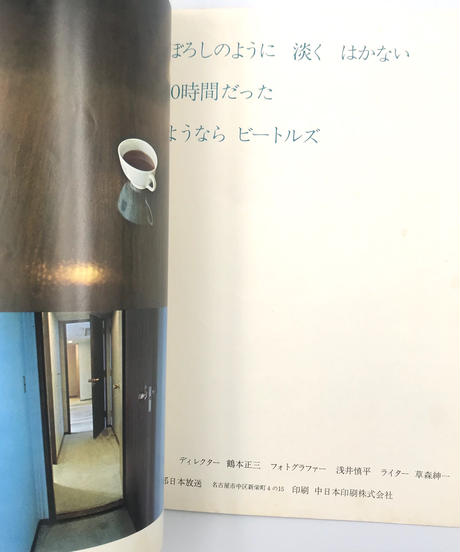 ぼろしのように 淡く はかない
0時間だった
ようなら ビートルズ
ディレクター 鶴本正三 フォトグラファー 浅井慎平 ライター 草森紳一
部日本放送 名古屋市中区新栄町4の15 印刷 中日本印刷株式会社